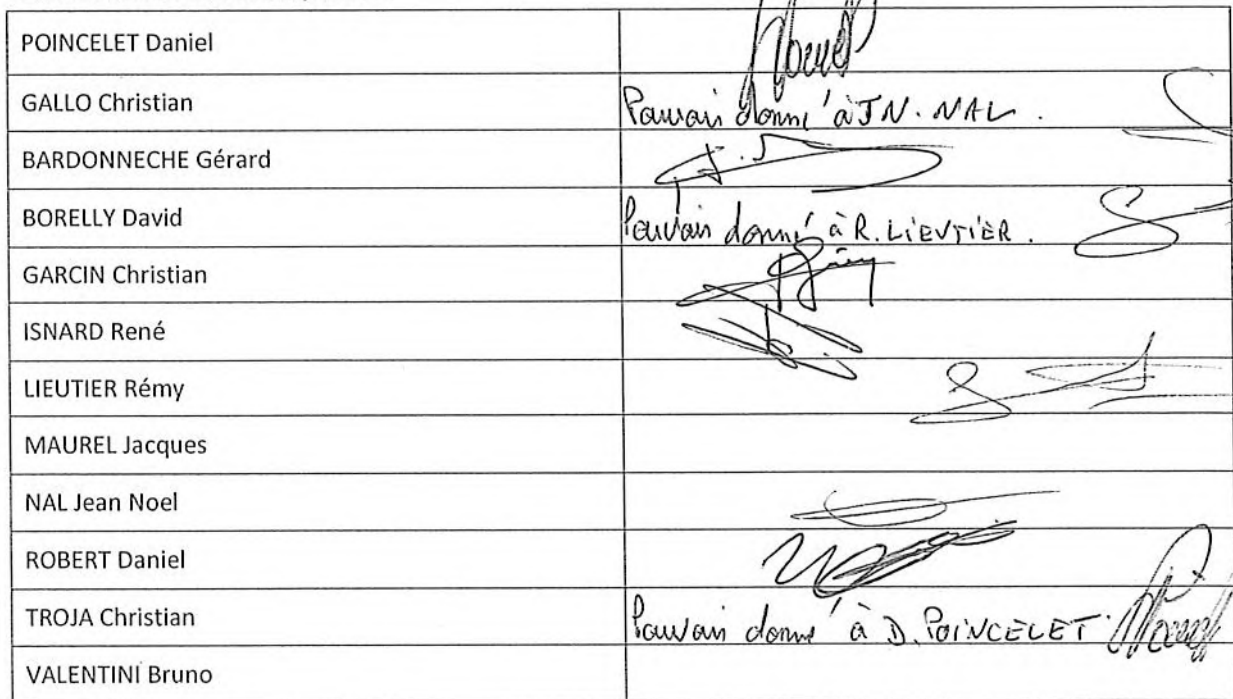 POINCELET Daniel
GALLO Christian Pouvoir donné à JN. NAL.
BARDONNECHE Gérard
BORELLY David Pouvoir donné à R. LIEUTIER.
GARCIN Christian
ISNARD René
LIEUTIER Rémy
MAUREL Jacques
NAL Jean Noel
ROBERT Daniel
TROJA Christian Pouvoir donné à D. POINCELET.
VALENTINI Bruno